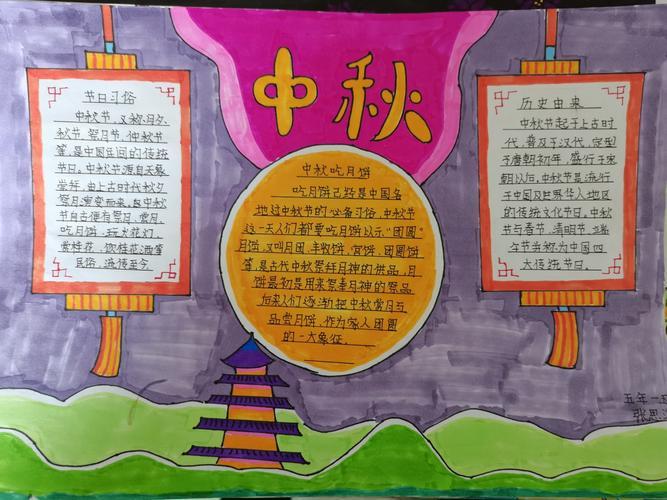 中秋
节日习俗
中秋节,又称月夕、
秋节、祭月节、仲秋节
等,是中国民间的传统
节日。中秋节源自天象
崇拜,由上古时代秋夕
祭月演变而来。自中秋
节自古便有祭月、赏月、
吃月饼、玩花灯、
赏桂花、饮桂花酒等
民俗,流传至今。
中秋吃月饼
吃月饼已经是中国各
地过中秋节的必备习俗,中秋节
这一天人们都要吃月饼以示“团圆”
月饼,又叫月团、丰收饼、宫饼、团圆饼
等,是古代中秋祭拜月神的供品,月
饼最初是用来祭奉月神的祭品
后来人们逐渐把中秋赏月与
品尝月饼,作为家人团圆
的一大象征。
历史由来
中秋节起于上古时
代,普及于汉代,定型
于唐朝初年,盛行于宋
朝以后,中秋节是流行
于中国及世界华人地区
的传统文化节日。中秋
节与春节、清明节、端
午节当称为中国四
大传统节日。
五年一班
张思